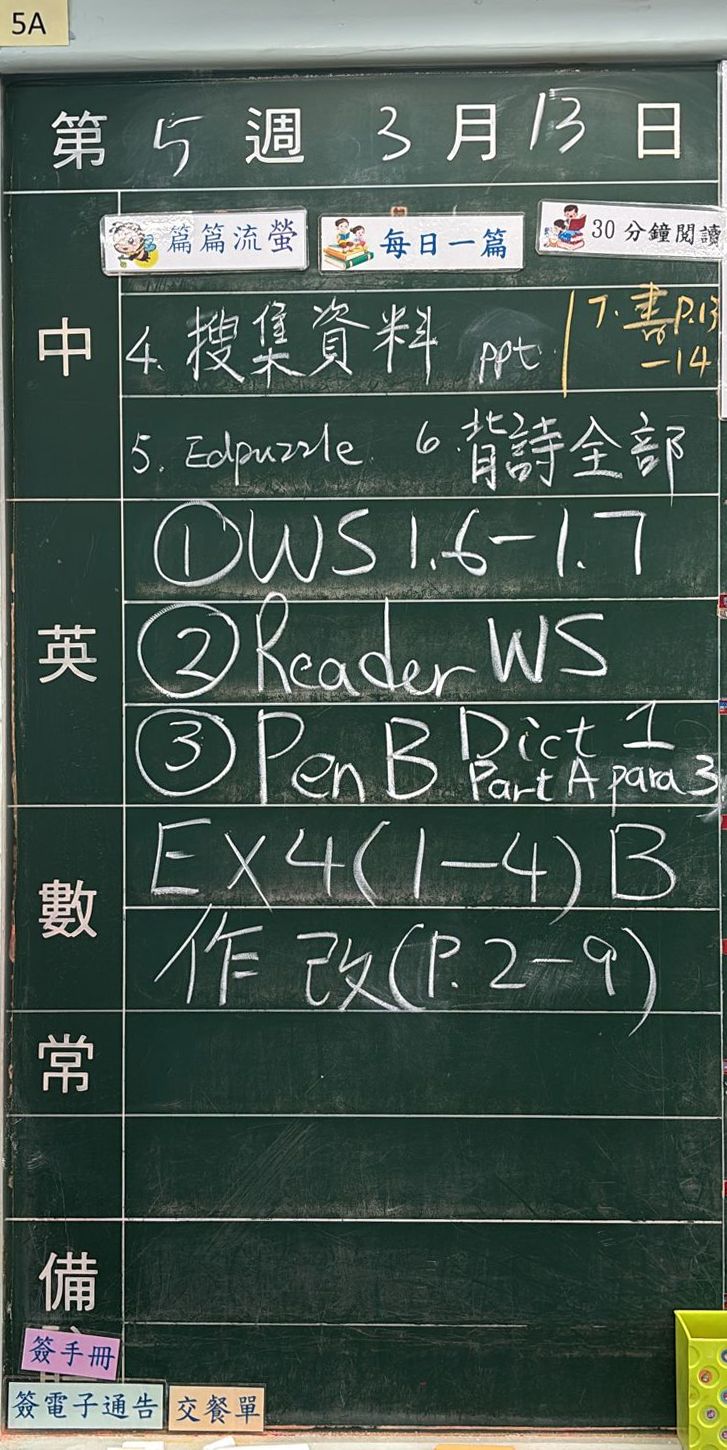 5A
第 5 週 3 月 13 日
中
篇篇流螢 每日一篇 30分鐘閱讀
4. 搜集資料 ppt. 7. 書P.13
-14
5. Edpuzzle. 6. 背詩全部
英
① WS 1.6-1.7
② Reader WS
③ Pen B Dict 1
Part A para 3
數
EX 4(1-4) B
作 改(P. 2-9)
常
備
簽手冊
簽電子通告 交餐單